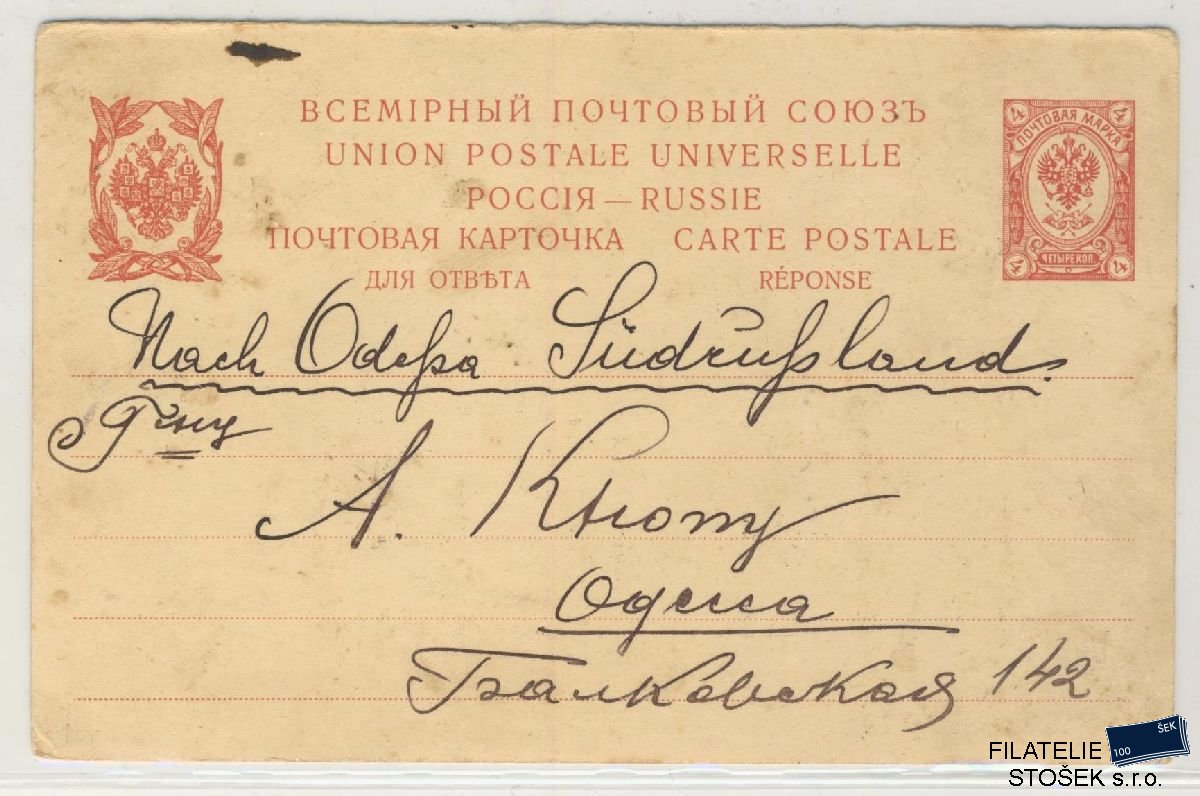 ВСЕМІРНЫЙ ПОЧТОВЫЙ СОЮЗЪ
UNION POSTALE UNIVERSELLE
РОССІЯ — RUSSIE
ПОЧТОВАЯ КАРТОЧКА CARTE POSTALE
ДЛЯ ОТВѢТА RÉPONSE
4 4
ПОЧТОВАЯ МАРКА
ЧЕТЫРЕ КОП.
4 4
Nach Odeßa Südrußland.
Г-ну
А. Кнопу
Одесса
Балковская 142
100 ŠEK
FILATELIE
STOŠEK s.r.o.